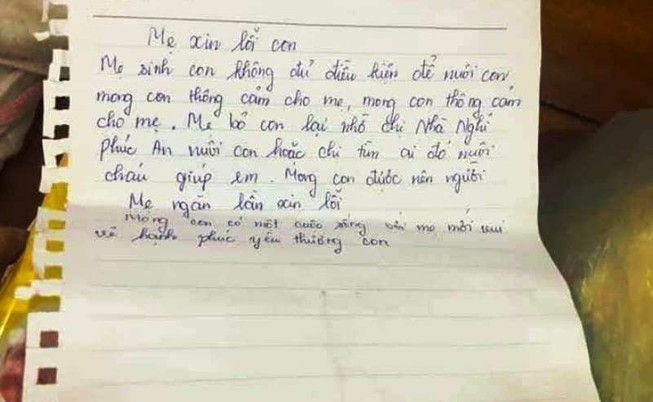 Mẹ xin lỗi con
Mẹ sinh con không đủ điều kiện để nuôi con
mong con thông cảm cho mẹ, mong con thông cảm
cho mẹ. Mẹ bỏ con lại nhờ chị Nhà Nghỉ
Phúc An nuôi con hoặc chị tìm ai đó nuôi
cháu giúp em. Mong con được nên người
Mẹ ngàn lần xin lỗi
Mong con có một cuộc sống bên mẹ mới vui
vẻ hạnh phúc yêu thương con